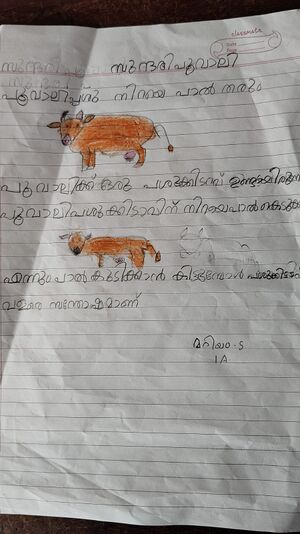 classmate
Date
Page
സുന്ദരിപൂവാലി
പൂവാലിപ്പശു നിറയെ പാൽ തരും
പൂവാലിക്ക് ഒരു പശുക്കിടാവ് ഉണ്ടായിരുന്നു
പൂവാലിപശുക്കിടാവിന് നിറയെപാൽ കൊടുക്കും
എന്നും പാൽ കുടിക്കാൻ കിട്ടുന്നതിനാൽ പശുക്കിടാ
വളരെ സന്തോഷമാണ്
മറിയം.S
1A